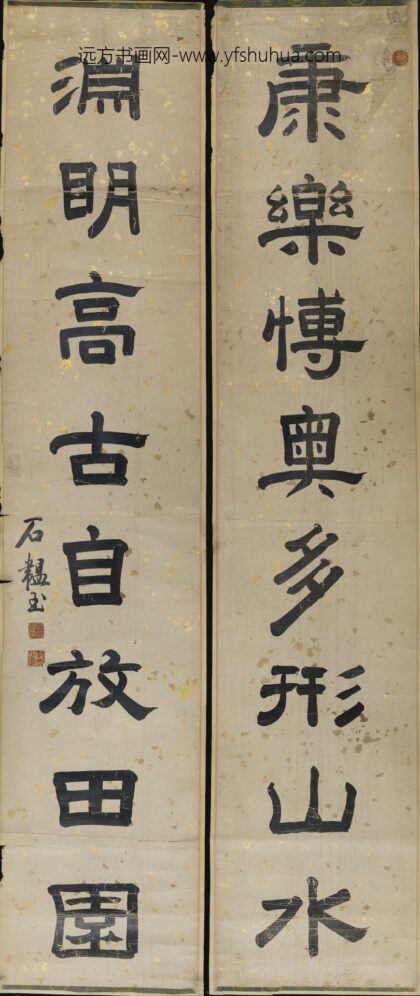 远方书画网-www.yfshuhua.com
康樂愽奧多形山水
淵明高古自放田園
石韞玉